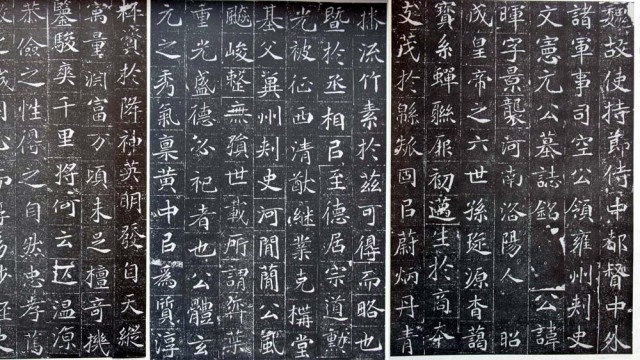 魏故使持節侍中都督中外
諸軍事司空公領雍州刾史
文憲元公墓誌銘 公諱
暉字景襲河南洛陽人 昭
成皇帝之六世孫琁源杳藹
寶系蟬聯厥初邁生於商本
支茂於緜瓞固㠯蔚炳丹青
播流竹素於茲可得而略也
暨於丞相㠯至德居宗道勲
光被征西清猷繼業克構堂
基父冀州刾史河間簡公氣
飈峻整無隕世載所謂弈葉
重光盛德必祀者也公體玄
元之秀氣稟黃中㠯為質淳
粹賓於降神英朗發自天縱
寓量淵富万頃未足擅奇機
鑒駿爽千里將何云匹温凉
恭儉之性得之自然忠孝篤